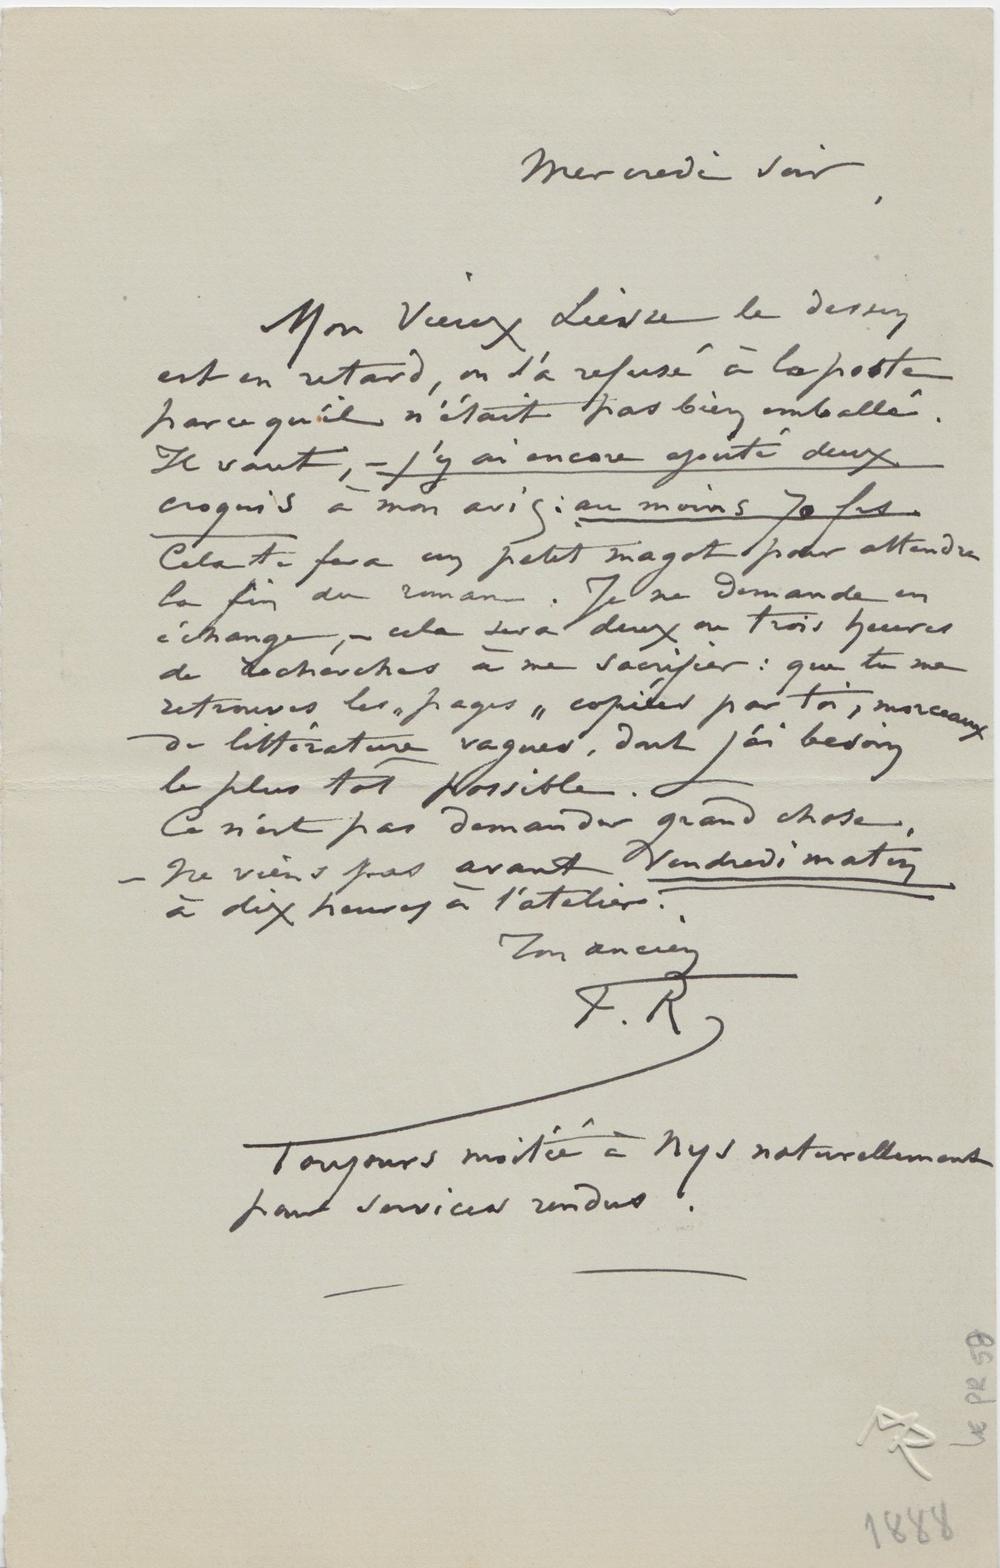 Mercredi soir,
Mon Vieux Liesse le dessin
est en retard, on l'a refusé à la poste
parce qu'il n'était pas bien emballé.
Il vaut, – j'y ai encore ajouté deux
croquis à mon avis: au moins 70 frs.
Cela te fera un petit magot pour attendre
la fin du roman. Je ne demande en
échange, – cela sera deux ou trois heures
de recherches à me sacrifier: que tu me
retrouves les „pages„ copiées par toi, morceaux
de littérature vagues, dont j'ai besoin
le plus tôt possible.
Ce n'est pas demander grand chose,
– Ne viens pas avant Vendredi matin
à dix heures à l'atelier.
Ton ancien
F. R
Toujours moitié à Nys naturellement
pour services rendus.
LE PR 59
1888